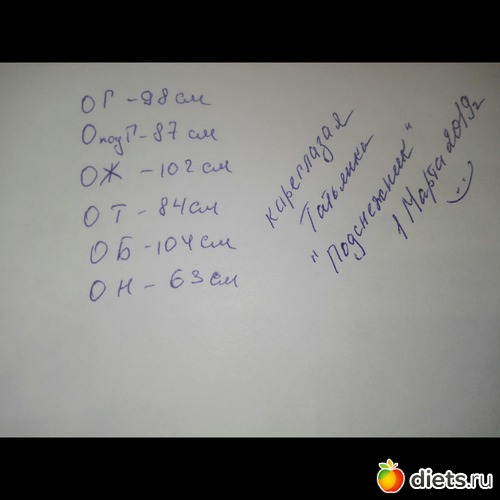 ОГ - 98 см
ОподГ - 87 см
ОЖ - 102 см
ОТ - 84 см
ОБ - 104 см
ОН - 63 см
кареглазая
Татьянка
"Подснежник"
1 Марта 2019г
diets.ru